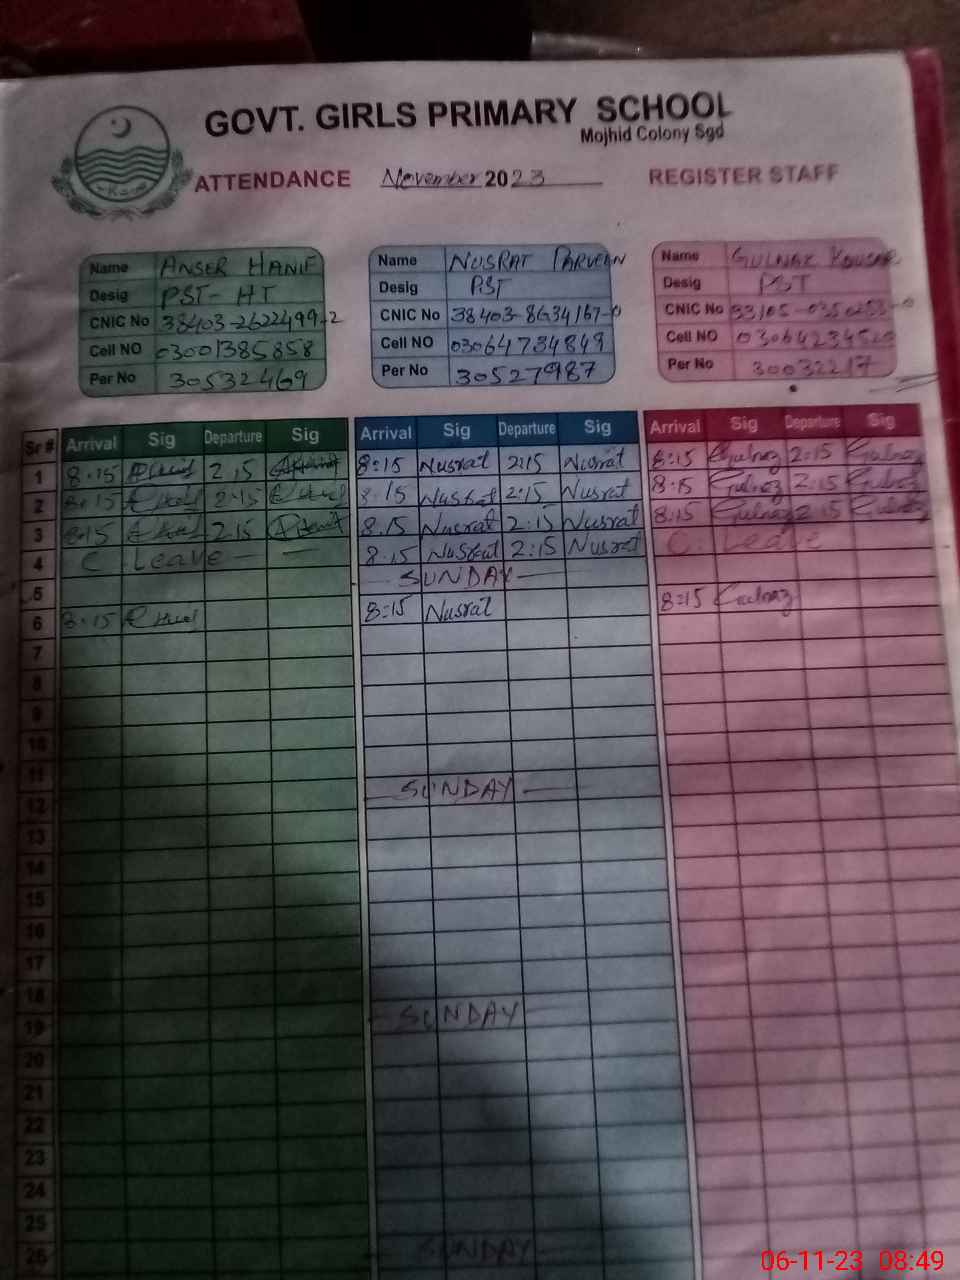 GOVT. GIRLS PRIMARY SCHOOL
Mojhid Colony Sgd
ATTENDANCE November 2023 REGISTER STAFF
Name ANSER HANIF
Desig PST-HT
CNIC No 38403-2622499-2
Cell NO 03001385858
Per No 30532469
Name NUSRAT PARVEEN
Desig PST
CNIC No 38403-8634167-0
Cell NO 03064734849
Per No 30527987
Name GULNAZ KOUSAR
Desig PST
CNIC No
Cell NO
Per No 30032217
Sr # Arrival Sig Departure Sig Arrival Sig Departure Sig Arrival Sig Departure Sig
1 8:15 2:15 8:15 Nusrat 2:15 Nusrat 8:15 Gulnaz 2:15 Gulnaz
2 8:15 2:15 8:15 Nusrat 2:15 Nusrat 8:15 Gulnaz 2:15 Gulnaz
3 8:15 2:15 8:15 Nusrat 2:15 Nusrat 8:15 Gulnaz 2:15 Gulnaz
4 C. Leave 8:15 Nusrat 2:15 Nusrat C. Leave
5 SUNDAY
6 8:15 8:15 Nusrat 8:15 Gulnaz
7
8
9
10
11
12 SUNDAY
13
14
15
16
17
18
19 SUNDAY
20
21
22
23
24
25
26 SUNDAY
06-11-23 08:49